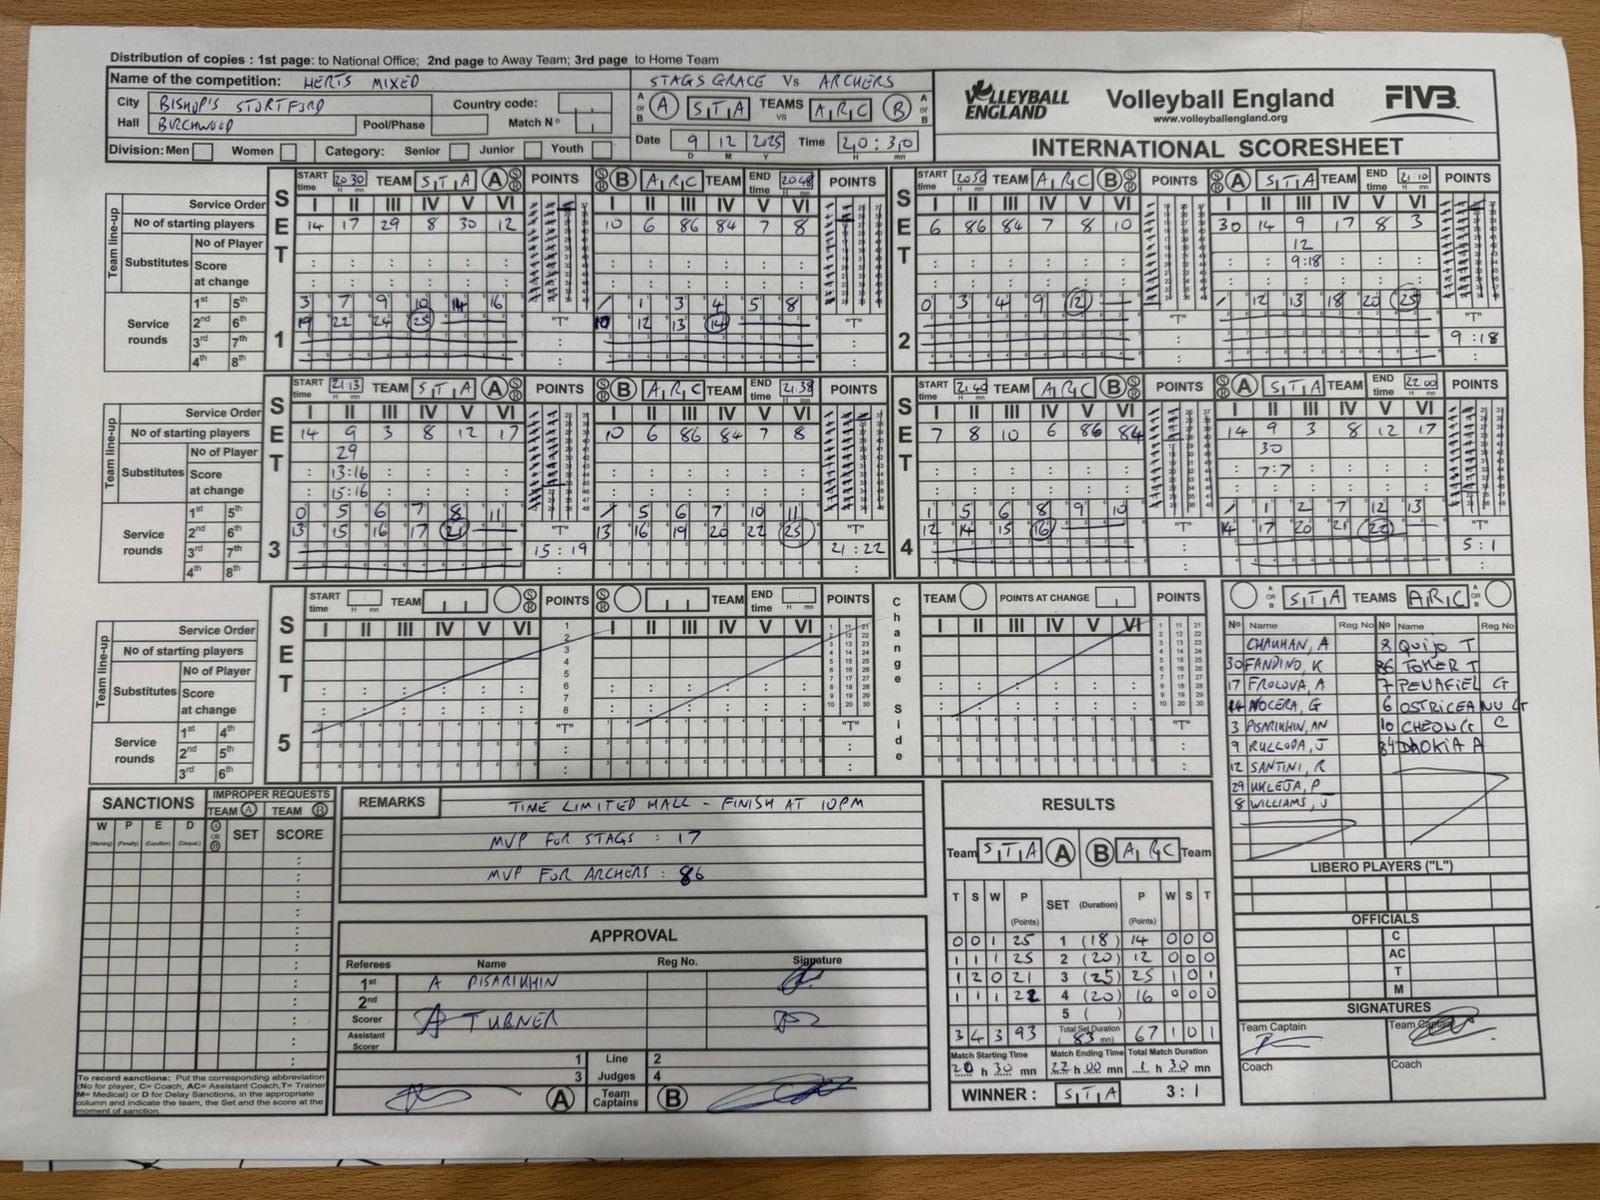 Distribution of copies : 1st page: to National Office; 2nd page to Away Team; 3rd page to Home Team
Name of the competition: HERTS MIXED
STAGS GRACE Vs ARCHERS
City BISHOP'S STORTFORD Country code:
Hall BIRCHWOOD Pool/Phase Match Nº
A or B A STA TEAMS vs ARC B A or B
Date 9 12 2025 Time 20:30
D M Y H mn
Division: Men Women Category: Senior Junior Youth
VOLLEYBALL ENGLAND
Volleyball England
www.volleyballengland.org
FIVB
INTERNATIONAL SCORESHEET
SET 1
START time 20 30 TEAM STA A S R POINTS S R B ARC TEAM END time 20 48 POINTS
Team line-up
Service Order I II III IV V VI I II III IV V VI
No of starting players 14 17 29 8 30 12 10 6 86 84 7 8
Substitutes No of Player
Score at change
Service rounds
1st 5th 3 7 9 10 14 16 / 1 3 4 5 8
2nd 6th 19 22 24 25 10 12 13 14
3rd 7th
4th 8th
"T" "T"
SET 2
START time 20 50 TEAM ARC B S R POINTS S R A STA TEAM END time 21 10 POINTS
I II III IV V VI I II III IV V VI
6 86 84 7 8 10 30 14 9 17 8 3
12
9:18
0 3 4 9 12 / 12 13 18 20 25
"T" "T"
9 : 18
SET 3
START time 21 13 TEAM STA A S R POINTS S R B ARC TEAM END time 21 38 POINTS
Team line-up
Service Order I II III IV V VI I II III IV V VI
No of starting players 14 9 3 8 12 17 10 6 86 84 7 8
Substitutes No of Player 29
Score at change 13:16
15:16
Service rounds
1st 5th 0 5 6 7 8 11 / 5 6 7 10 11
2nd 6th 13 15 16 17 21 13 16 19 20 22 25
3rd 7th
4th 8th
"T" 15 : 19 "T" 21 : 22
SET 4
START time 21 40 TEAM ARC B S R POINTS S R A STA TEAM END time 22 00 POINTS
I II III IV V VI I II III IV V VI
7 8 10 6 86 84 14 9 3 8 12 17
30
7:7
1 5 6 8 9 10 / 1 2 7 12 13
12 14 15 16 14 17 20 21 22
"T" "T"
5 : 1
SET 5
START time TEAM S R POINTS S R TEAM END time POINTS
Change Side
TEAM POINTS AT CHANGE POINTS
Team line-up
Service Order I II III IV V VI I II III IV V VI I II III IV V VI
No of starting players
Substitutes No of Player
Score at change
Service rounds
1st 4th
2nd 5th
3rd 6th
"T" "T" "T"
A OR B STA TEAMS ARC A OR B
Nº Name Reg No Nº Name Reg No
CHAUHAN, A 8 QUIJO T
30 FANDINO, K 86 TOMER T
17 FROLOVA, A 7 PENAFIEL G
14 NOCERA, G 6 OSTRICEANU G
3 PISARIKHIN, AN 10 CHEONG C
9 RULLODA, J 84 DAOKIA A
12 SANTINI, R
29 UKLEJA, P
8 WILLIAMS, J
LIBERO PLAYERS ("L")
OFFICIALS
C
AC
T
M
SIGNATURES
Team Captain Team Captain
Coach Coach
SANCTIONS
IMPROPER REQUESTS
TEAM A TEAM B
W P E D A OR B SET SCORE
(Warning) (Penalty) (Expulsion) (Disqual.)
To record sanctions: Put the corresponding abbreviation
(No for player, C= Coach, AC= Assistant Coach, T= Trainer
M= Medical) or D for Delay Sanctions, in the appropriate
column and indicate the team, the Set and the score at the
moment of sanction.
REMARKS
TIME LIMITED HALL - FINISH AT 10PM
MVP FOR STAGS : 17
MVP FOR ARCHERS : 86
APPROVAL
Referees Name Reg No. Signature
1st A PISARIKHIN
2nd
Scorer A TURNER
Assistant Scorer
1 Line 2
3 Judges 4
A Team Captains B
RESULTS
Team STA A B ARC Team
T S W P (Points) SET (Duration) P (Points) W S T
0 0 1 25 1 (18) 14 0 0 0
1 1 1 25 2 (20) 12 0 0 0
1 2 0 21 3 (25) 25 1 0 1
1 1 1 22 4 (20) 16 0 0 0
5 ( )
3 4 3 93 Total Set Duration (83 mn) 67 1 0 1
Match Starting Time Match Ending Time Total Match Duration
20 h 30 mn 22 h 00 mn 1 h 30 mn
WINNER : STA 3 : 1